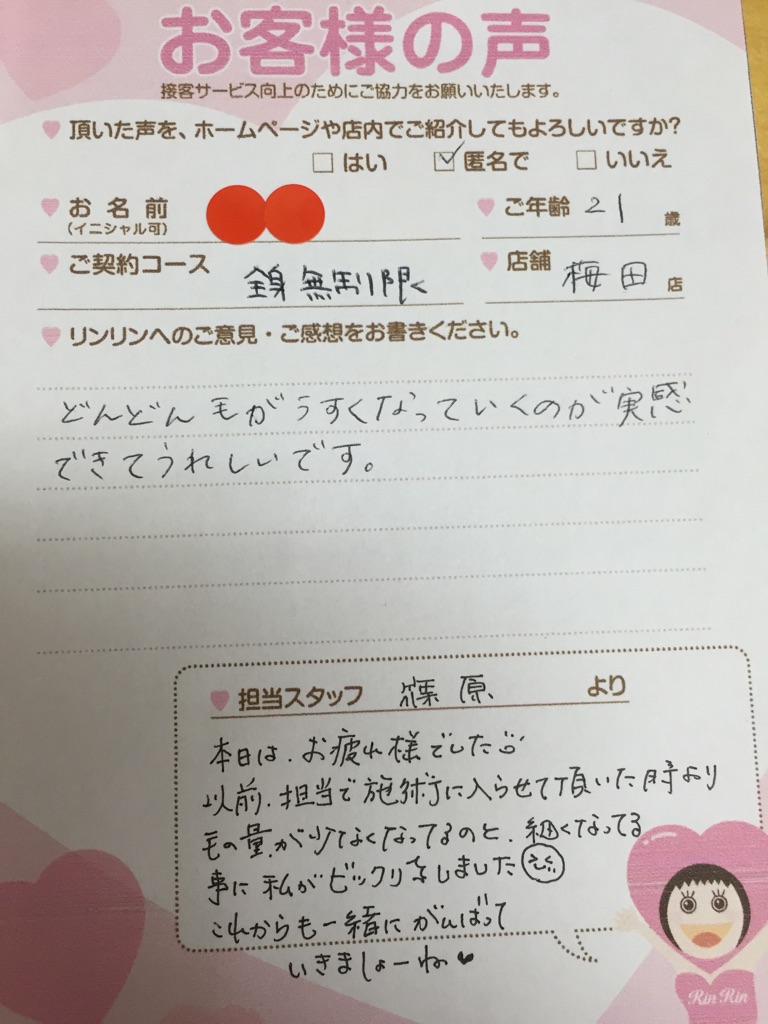 お客様の声
接客サービス向上のためにご協力をお願いいたします。
頂いた声を、ホームページや店内でご紹介してもよろしいですか?
はい 匿名で いいえ
お名前 ご年齢 21 歳
(イニシャル可)
ご契約コース 全身無制限 店舗 梅田 店
リンリンへのご意見・ご感想をお書きください。
どんどん毛がうすくなっていくのが実感
できてうれしいです。
担当スタッフ 篠原 より
本日は、お疲れ様でした
以前、担当で施術に入らせて頂いた時より
毛の量が少なくなってるのと、細くなってる
事に私がビックリをしました
これからも一緒にがんばって
いきましょーね♥
Rin Rin